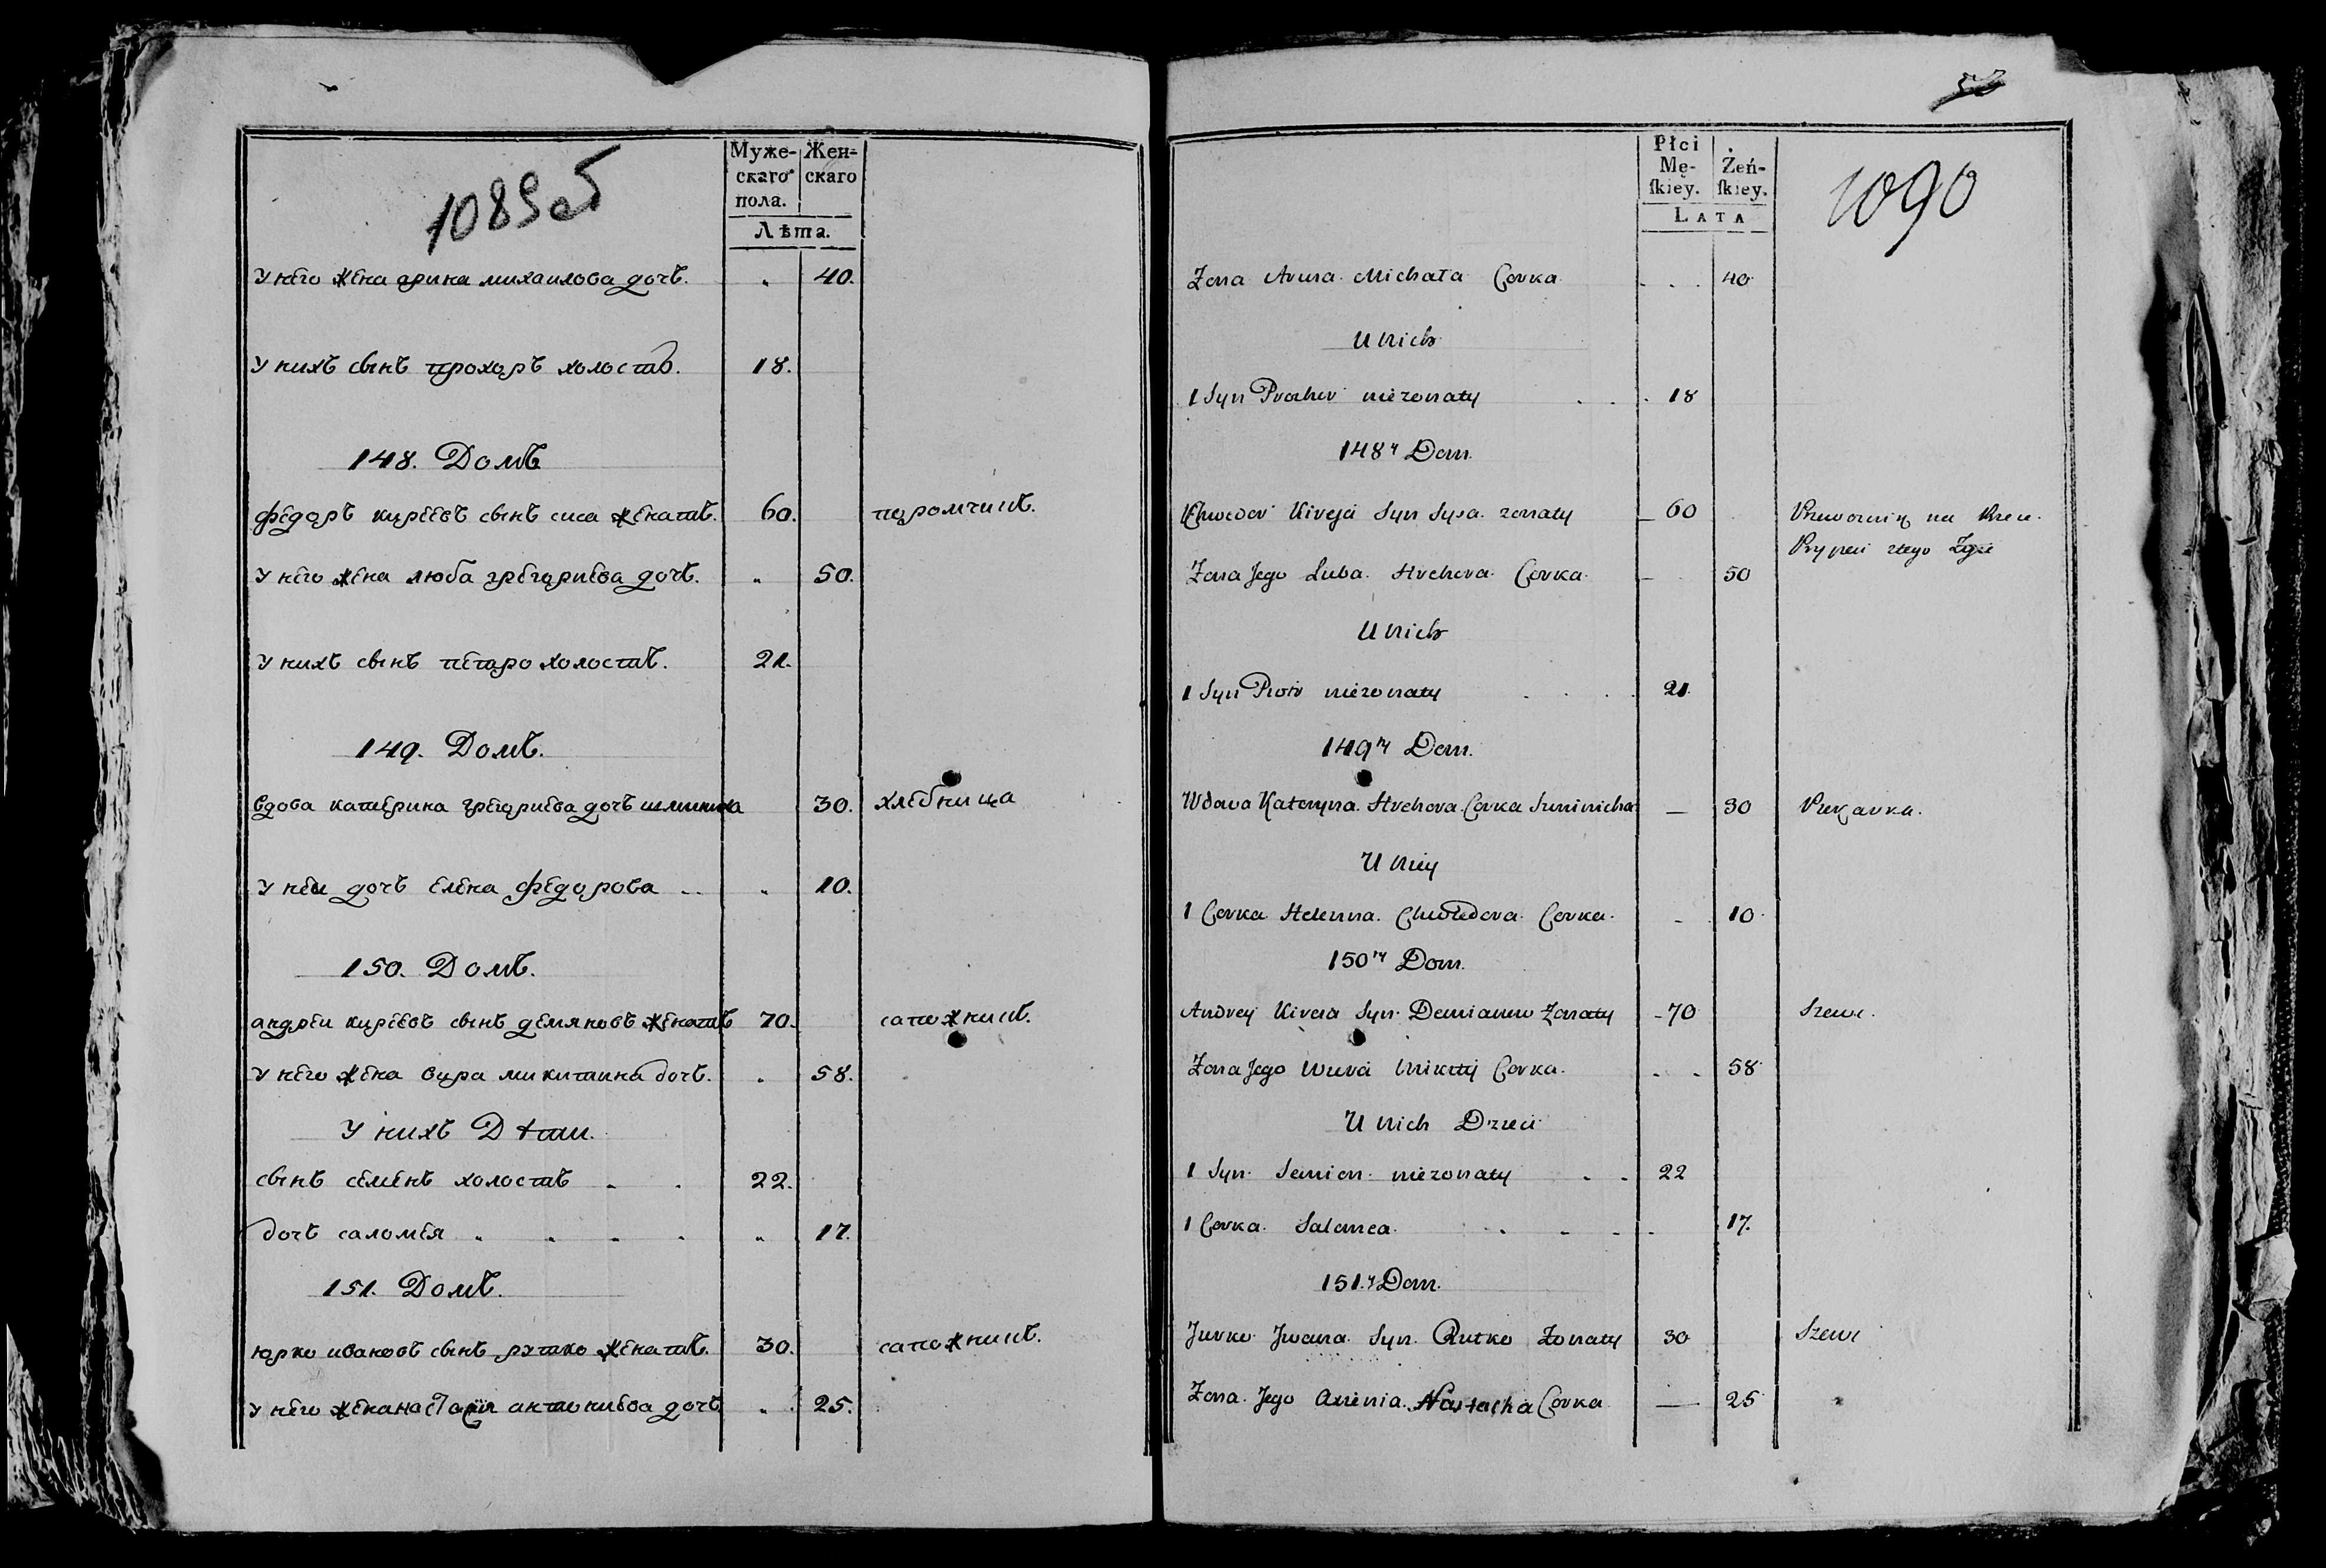 1089об
Муже- Жен-
скаго скаго
пола.
Лѣта.
У него жена арина михаилова дочь. „ 40.
У нихъ сынъ прохоръ холостъ. 18.
148. Домъ
федоръ киреевъ сынъ сиса женатъ. 60. паромчикъ.
У него жена люба григориева дочь. „ 50.
У нихъ сынъ петро холостъ. 21.
149. Домъ.
вдова катерина григориева дочь 30. хлебница
У неи дочь елена федорова „ 10.
150. Домъ.
андреи киреевъ сынъ демяновъ женатъ 70. сапожникъ.
У него жена вира микитина дочь. „ 58.
У нихъ Дѣти.
сынъ семенъ холостъ 22.
дочь саломея „ 17.
151. Домъ.
юрко ивановъ сынъ рутко женатъ. 30. сапожникъ.
У него жена настасия антониева дочь „ 25.
1090
Płci
Mę- Żeń-
skiey. skiey.
LATA
Zona Arina Michała Corka 40
U nich
1 Syn Prochor niezonaty 18
148y Dom
Chwedor Kireja Syn Sysa zonaty 60
Zona Jego Luba Hrehora Corka 50
U nich
1 Syn Piotr niezonaty 21.
149y Dom.
Wdowa Kateryna Hrehora Corka 30 Piekarka.
U niey
1 Corka Helenna Chwedora Corka 10
150y Dom.
Andrey Kireia Syn Demianow Zonaty 70 Szewc.
Zona Jego Wiera Mikity Corka. 58
U nich Dzieci
1 Syn Semion niezonaty 22
1 Corka Salomea 17.
151.y Dom.
Jurko Jwana Syn Rutko Zonaty 30 Szewc
Zona Jego Nastacha Corka 25